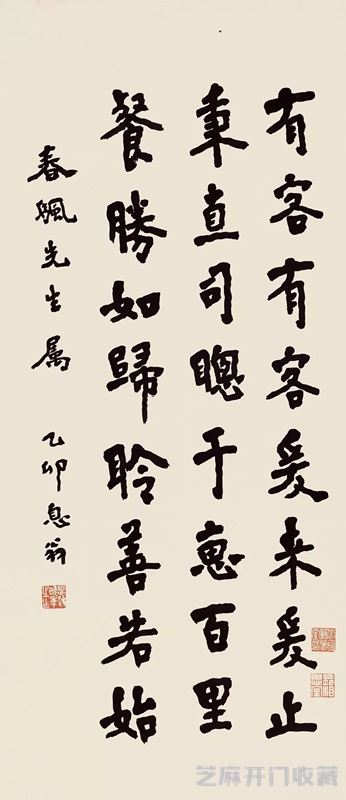 有客有客爰来爰止
秉直司聰于惠百里
餐勝如歸聆善若始
春颿先生属 乙卯息翁
芝麻开门收藏